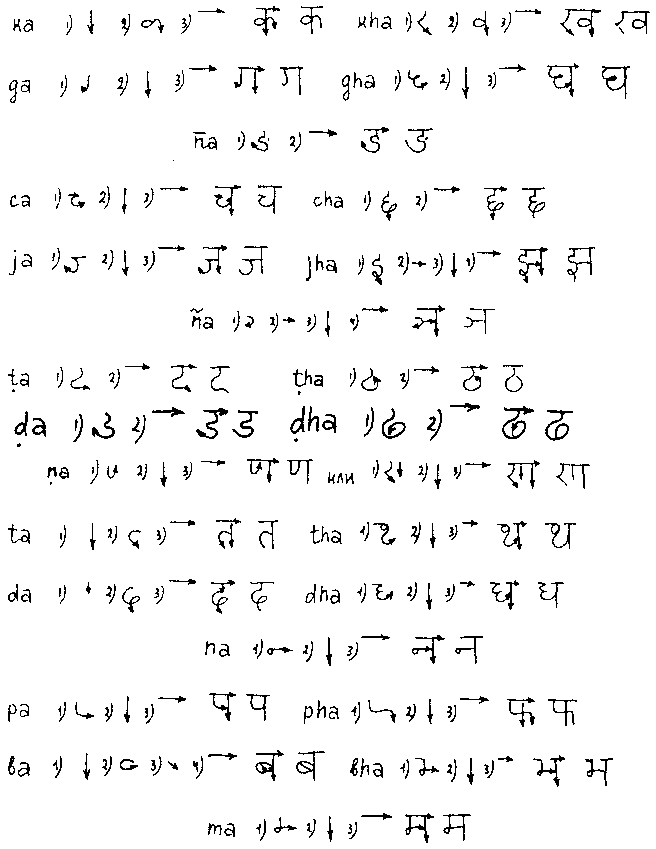 ka 1) 2) 3) क क kha 1) 2) 3) ख ख
ga 1) 2) 3) ग ग gha 1) 2) 3) घ घ
n̄a 1) 2) ङ ङ
ca 1) 2) 3) च च cha 1) 2) छ छ
ja 1) 2) 3) ज ज jha 1) 2) 3) 4) झ झ
ña 1) 2) 3) 4) ञ ञ
ṭa 1) 2) ट ट ṭha 1) 2) ठ ठ
ḍa 1) 2) ड ड ḍha 1) 2) ढ ढ
ṇa 1) 2) 3) ण ण или 1) 2) 3) ण ण
ta 1) 2) 3) त त tha 1) 2) 3) थ थ
da 1) 2) 3) द द dha 1) 2) 3) ध ध
na 1) 2) 3) न न
pa 1) 2) 3) प प pha 1) 2) 3) फ फ
ba 1) 2) 3) 4) ब ब bha 1) 2) 3) भ भ
ma 1) 2) 3) म म